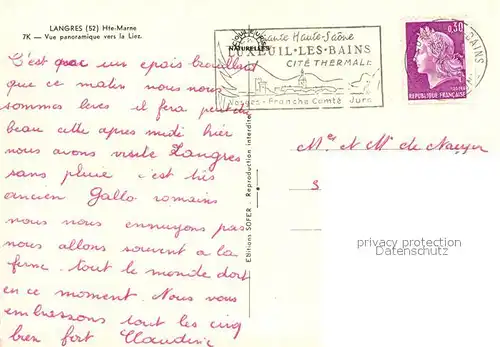 LANGRES (52) Hte-Marne
7K — Vue panoramique vers la Liez.
COULEURS
NATURELLES
Haute Haute-Saône
LUXEUIL-LES-BAINS
CITÉ THERMALE
Vosges-Franche Comté Jura
BAINS
0,30
REPUBLIQUE FRANÇAISE
C'est que un epais brouillard
que ce matin nous nous
sommes leves il fera peut
beau cette apres midi hier
nous avons visite Langres
sans pluie c'est très
ancien Gallo romains
nous nous ennuyons pas
nous allons souvent a la
ferme tout le monde dort
en ce moment. Nous vous
embrassons tout les cinq
bien fort Claudine
Editions SOFER - Reproduction interdite
Mr et Me de
s
privacy protection
Datenschutz